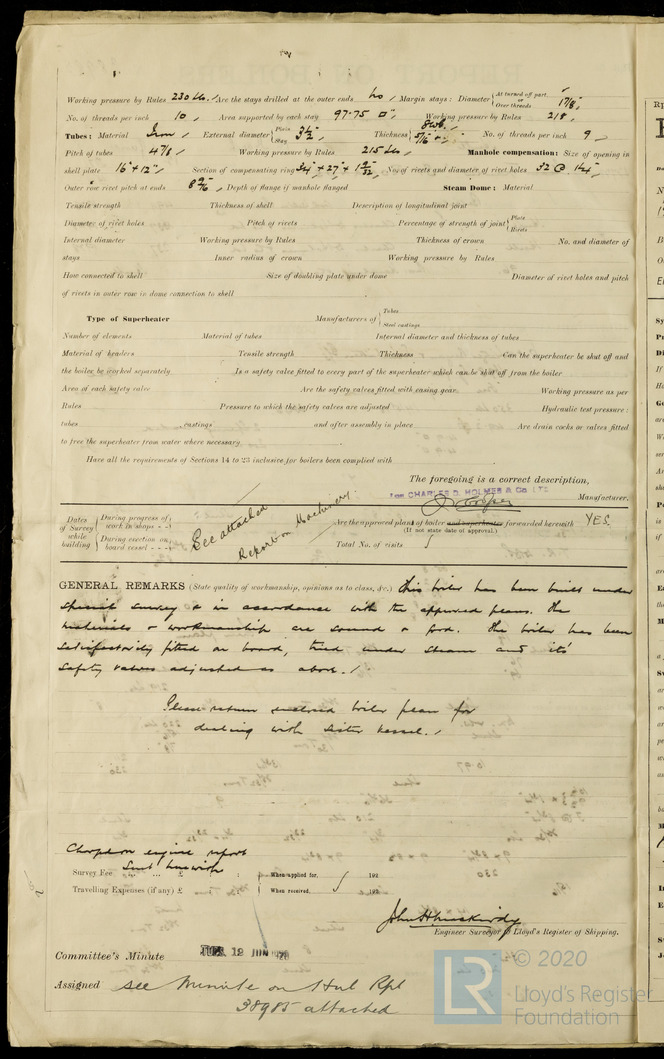 Working pressure by Rules 230 lbs. Are the stays drilled at the outer ends No Margin stays: Diameter { At turned off part, or Over threads 1 7/8"
No. of threads per inch 10 Area supported by each stay 97.75 □" Working pressure by Rules 218
Tubes: Material Iron External diameter { Plain Stay 3½" Thickness { 8WG. 5/16" No. of threads per inch 9
Pitch of tubes 4 7/8 Working pressure by Rules 215 lbs Manhole compensation: Size of opening in
shell plate 16" × 12" Section of compensating ring No. of rivets and diameter of rivet holes 32 @ 1¼"
Outer row rivet pitch at ends Depth of flange if manhole flanged Steam Dome: Material
Tensile strength Thickness of shell Description of longitudinal joint
Diameter of rivet holes Pitch of rivets Percentage of strength of joint { Plate Rivets
Internal diameter Working pressure by Rules Thickness of crown No. and diameter of
stays Inner radius of crown Working pressure by Rules
How connected to shell Size of doubling plate under dome Diameter of rivet holes and pitch
of rivets in outer row in dome connection to shell
Type of Superheater Manufacturers of { Tubes Steel castings
Number of elements Material of tubes Internal diameter and thickness of tubes
Material of headers Tensile strength Thickness Can the superheater be shut off and
the boiler be worked separately Is a safety valve fitted to every part of the superheater which can be shut off from the boiler
Area of each safety valve Are the safety valves fitted with easing gear Working pressure as per
Rules Pressure to which the safety valves are adjusted Hydraulic test pressure:
tubes castings and after assembly in place Are drain cocks or valves fitted
to free the superheater from water where necessary
Have all the requirements of Sections 14 to 23 inclusive for boilers been complied with
The foregoing is a correct description,
FOR CHARLES D. HOLMES & Co LTD
Manufacturer.
Dates of Survey while building { During progress of work in shops - - During erection on board vessel - - - See attached Report on Machinery. Are the approved plans of boiler and superheater forwarded herewith YES.
(If not state date of approval.)
Total No. of visits
GENERAL REMARKS (State quality of workmanship, opinions as to class, &c.) This boiler has been built under
special survey & in accordance with the approved plans. The
materials & workmanship are sound & good. The boiler has been
satisfactorily fitted on board, tried under steam and its
safety valves adjusted as above.
Please return enclosed boiler plan for
dealing with sister vessel.
Charged on engine report
Sent herewith
Survey Fee ... ... £ : : When applied for, 192
Travelling Expenses (if any) £ : : When received, 192
Engineer Surveyor to Lloyd's Register of Shipping.
Committee's Minute TUE. 12 JUN 1928
Assigned see Minute on Hul Rpt
38985 attached
© 2020
Lloyd's Register
Foundation
LR